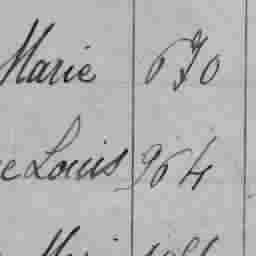 Marie 670
Louis 964